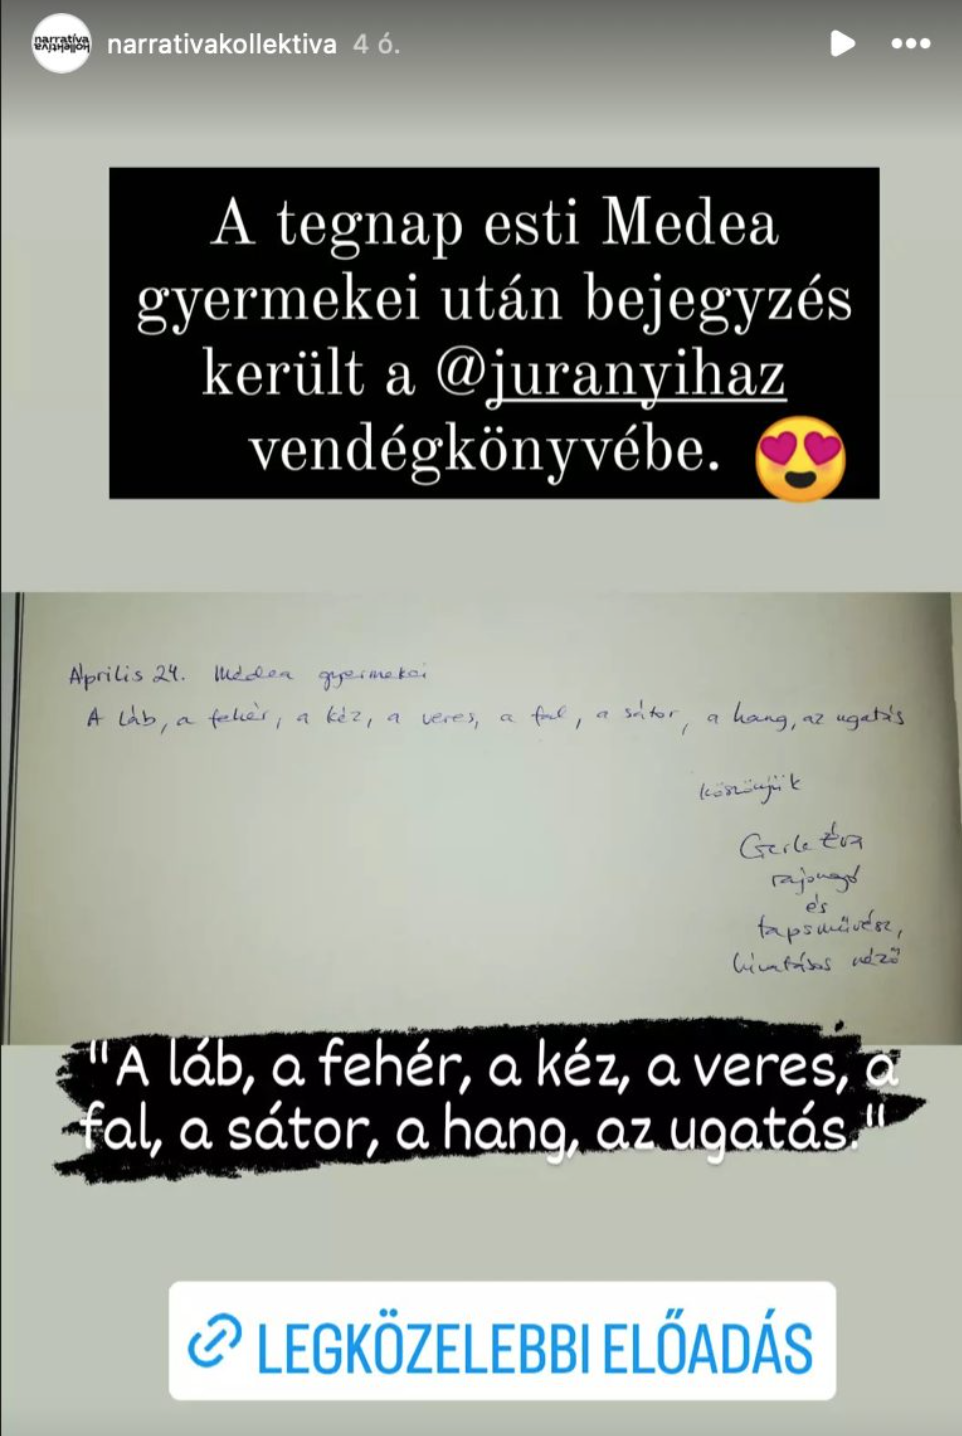 narratíva
kollektíva
narrativakollektiva 4 ó.
A tegnap esti Medea
gyermekei után bejegyzés
került a @juranyihaz
vendégkönyvébe. 😍
Április 24. Médea gyermekei
A láb, a fehér, a kéz, a veres, a fal, a sátor, a hang, az ugatás
köszönjük
Gerle Éva
rajongó
és
tapsművész,
hivatásos néző
"A láb, a fehér, a kéz, a veres, a
fal, a sátor, a hang, az ugatás."
LEGKÖZELEBBI ELŐADÁS